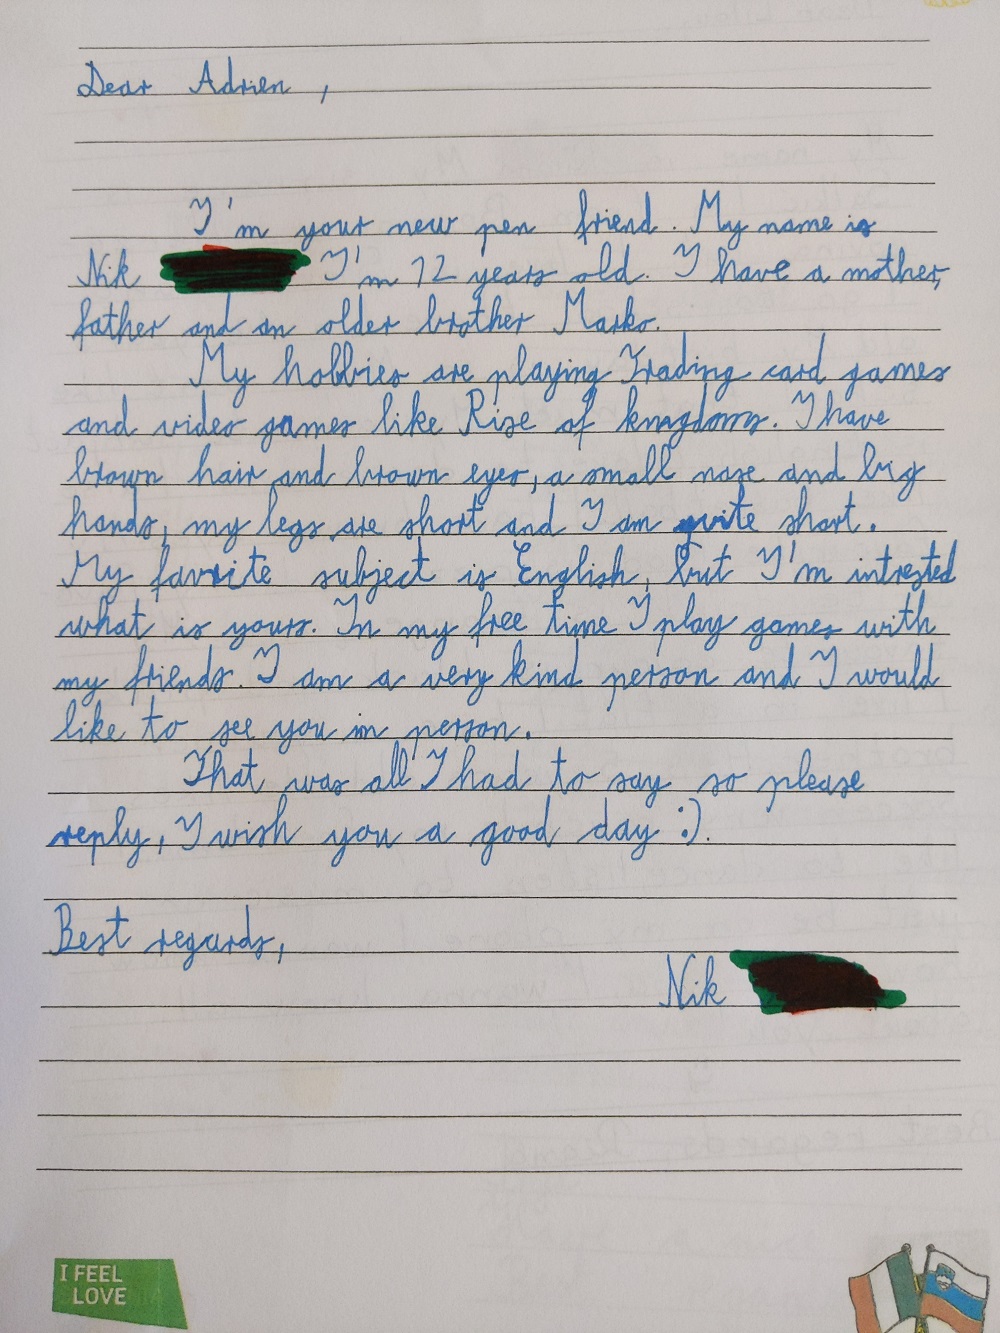 Dear Adrien,
I'm your new pen friend. My name is
Nik I'm 12 years old. I have a mother,
father and an older brother Marko.
My hobbies are playing Trading card games
and video games like Rise of kingdoms. I have
brown hair and brown eyes, a small nose and big
hands, my legs are short and I am quite short.
My favrite subject is English, but I'm intrested
what is yours. In my free time I play games with
my friends. I am a very kind person and I would
like to see you in person.
That was all I had to say so please
reply, I wish you a good day :).
Best regards,
Nik
I FEEL
LOVE